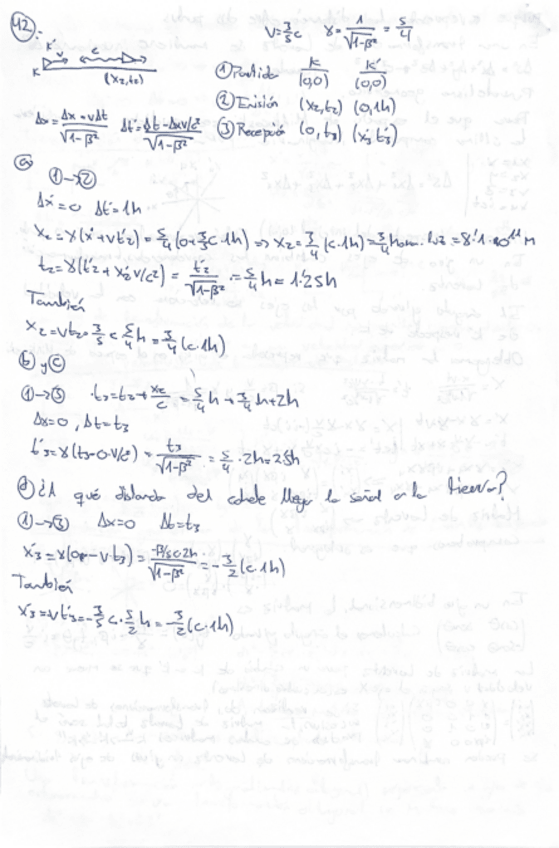 42.
V=3/5c γ=1/√1-β² = 5/4
K' v c
K (x2,t2)
K K'
① Partida (0,0) (0,0)
② Emisión (x2,t2) (0,1h)
③ Recepción (0,t3) (x'3 t'3)
Δx = Δx'+vΔt'/√1-β² Δt'=Δt-Δxv/c²/√1-β²
a) ①→②
Δx'=0 Δt'=1h
x2=γ(x'+vt'2)=5/4(0+3/5c·1h) ⇒ x2=3/4(c·1h)=3/4 luz=8'1·10¹¹ m
t2=γ(t'2+x'2v/c²)=t'2/√1-β²=5/4h=1'25h
También
x2=vt2=3/5c 5/4h=3/4(c·1h)
b) y c)
①→③ t3=t2+x2/c=5/4h+3/4h=2h
Δx=0, Δt=t3
t'3=γ(t3-0·v/c²)=t3/√1-β²=5/4·2h=2'5h
d) ¿A qué distancia del cohete llega la señal a la tierra?
①→③ Δx=0 Δt=t3
x'3=γ(0-vt3)=-3/5c2h/√1-β²=-3/2(c·1h)
También
x'3=vt'3=-3/5c·5/2h=-3/2(c·1h)